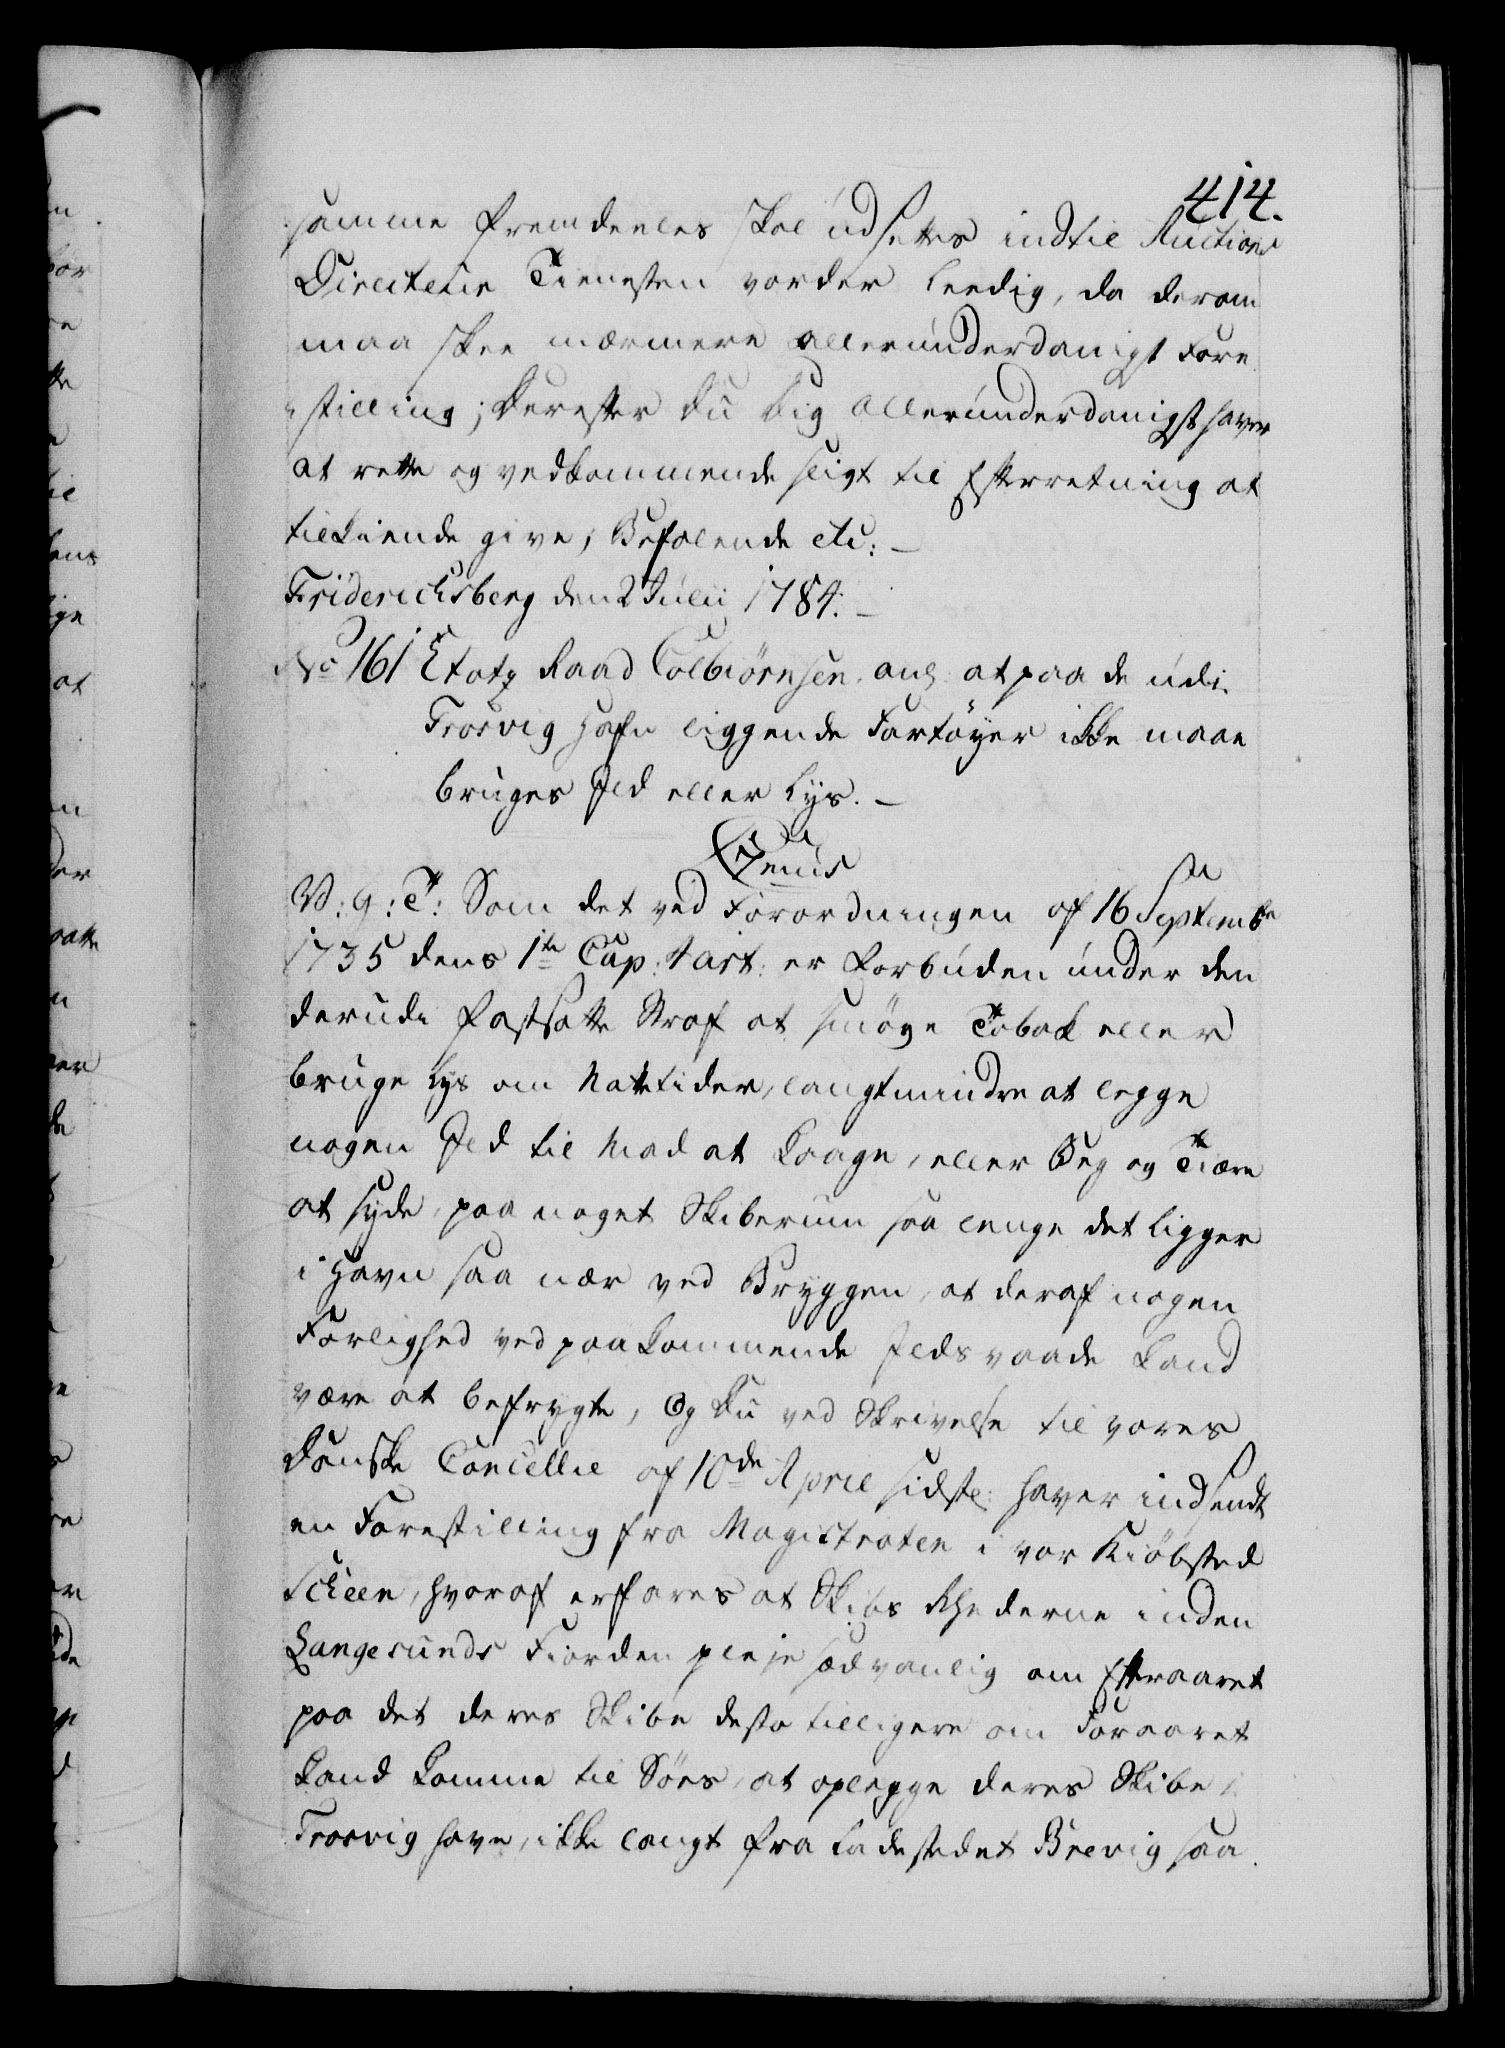 414.
samme fremdeeles skal udsettes indtil Auctions
Directeur Tienesten vorder leedig, da derom
maa skee nærmere allerunderdanigst Fore
stilling; Derefter Du Dig allerunderdanigst haver
at rette og vedkommende sligt til Efterretning at
tilkiende give, Befalende etc: –
Friderichsberg den 2 Julii 1784. –
No 161 Etatz Raad Colbiørnsen ang: at paa de udi
Trosvig Hafn liggende Fartøyer ikke maae
bruges Ild eller Lys. –
Genus
V: g: T: Som det ved Forordningen af 16 Septembr
1735 dens 1te Cap: 4 art: er forbuden under den
derudi fastsatte Straf at smøge Tobak eller
bruge Lys om Nattetider, langtmindre at legge
nogen Ild til Mad at kaage, eller Beg og Tiære
at syde, paa noget Skiberum saa lenge det ligger
i Havn saa nær ved Bryggen, at deraf nogen
Farlighed ved paakommende Ildsvaade kand
være at befrygte, Og Du ved Skrivelse til vores
Danske Cancellie af 10de April sidstl: haver indsendt
en Forestilling fra Magistraten i vor Kiøbsted
Scheen, hvoraf erfares at Skibs Rhederne inden
Langesunds Fiorden pleje sædvanlig om Efteraaret
paa det deres Skibe desto tilligere om Foraaret
kand komme til Søes, at oplegge deres Skibe i
Trosvig Havn, ikke langt fra Ladestedet Brevig saa